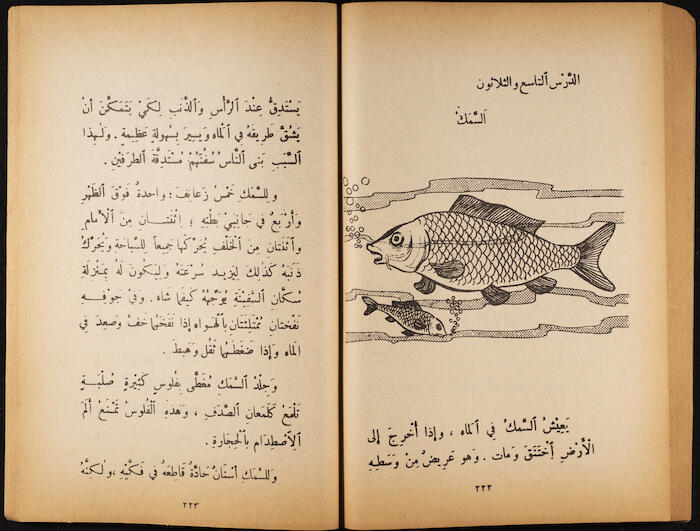 الدَّرْس ٱلتاسع والثلاثون
اَلسَّمَكُ
يَعِيْشُ ٱلسمكُ فِي ٱلماء ، وإذا أُخْرِجَ إلى
الْأَرْضِ اِخْتَنَقَ وَمات . وَهو عَرِيضٌ مِنْ وَسَطِهِ
٢٢٢
يَسْتَدِقُّ عِنْدَ ٱلرَّأْسِ وَٱلذَّنَبِ لِكَيْ يَتَمَكَّنَ أنْ
يَشُقَّ طريقَهُ فِي ٱلْماءِ وَيسيرَ بِسُهولةٍ عَظِيمةٍ . وَلهٰذا
ٱلسَّبَبِ بَنى ٱلنَّاسُ سُفُنَهُمْ مُسْتَدِقَّةَ ٱلطرفَيْنِ .
و للسَّمَكِ خَمْسُ زَعانِفَ : واحدةٌ فَوْقَ ٱلظَّهْرِ
وَأَرْبَعٌ فِي جانِبَيْ بَطْنِهِ ؛ اِثْنَتـانِ مِنَ ٱلْأمامِ
وٱثْنتانِ مِنَ ٱلْخَلْفِ يُحَرِّكُها جَمِيعاً لِلسِّباحَةِ وَيُحَرِّكُ
ذَنَبَهُ كَذلِكَ لِيَزِيـدَ سُرْعَتَهُ وَلِيَكُونَ لَهُ بِمَنْزِلَةِ
سُكَّانِ ٱلسَّفِينَةِ يُوَجِّهُهُ كَيْفَما شاء . وَفِيْ جَوْفِـهِ
نَفْخَتانِ مُمْتَلِئَتانِ بِٱلْهَـواءِ إذا نَفَخَهُما خَفَّ وَصَعِدَ فِي
الماءِ وَإذا ضَغَطَهُما ثَقُلَ وَهَبَطَ .
وَجِلْدُ ٱلسَّمَكِ مُغَطَّى بِفُلوسٍ كَثِيْرَةٍ صُلْبَـةٍ
تَلْمَعُ كَلَمَعانِ ٱلصَّدَفِ ، وَهَذِهِ ٱلْفُلوسُ تَمْنَعُ أَلَمَ
ٱلْاِصْطِدامِ بِٱلْحِجارةِ .
وَللسَّمَكِ أَسْنانٌ حادَّةٌ قاطِعَةٌ فِي فَكَّيْهِ ،وَلٰكِنَّهُ
٢٢٣